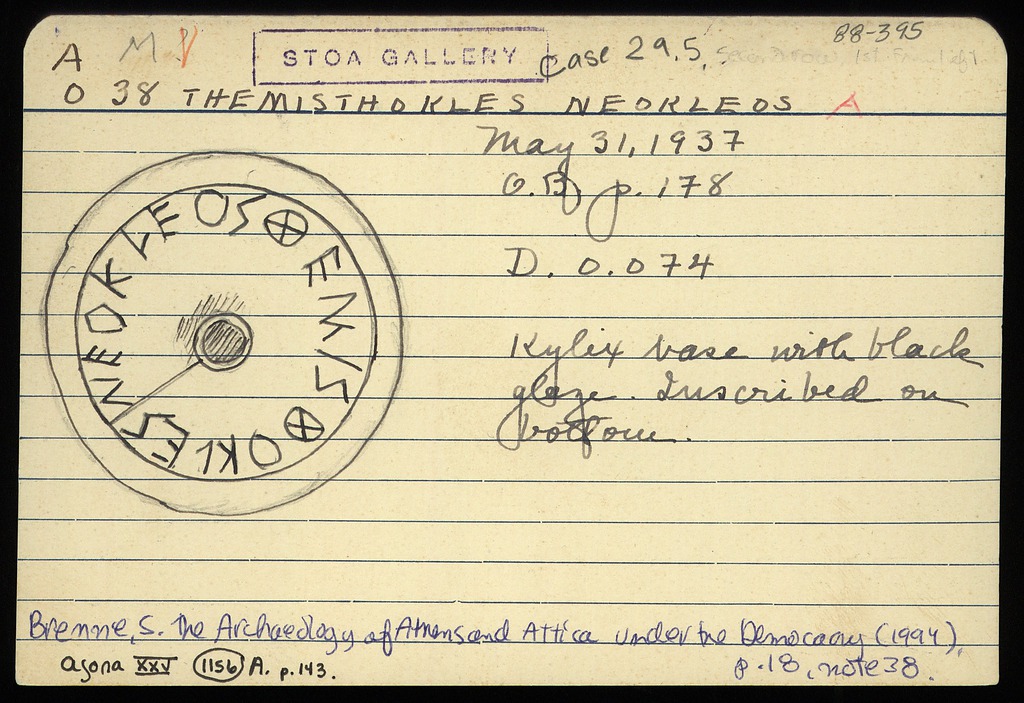 88-395
A M.V STOA GALLERY Case 29.5.
O 38 THEMISTHOKLES NEOKLEOS A
May 31, 1937
O.B p. 178
D. 0.074
Kylix base with black
glaze. Inscribed on
bottom.
⊕EMIS⊕OKLES NEOKLEOS
Brenne, S. The Archaeology of Athens and Attica under the Democracy (1994),
p.18, note 38.
Agora XXV 1156 A. p.143.